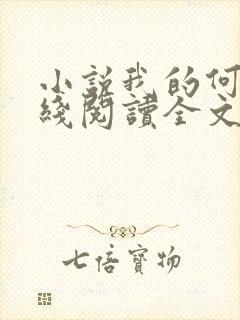 小說我的何
綫閱讀全文
七倍寶物